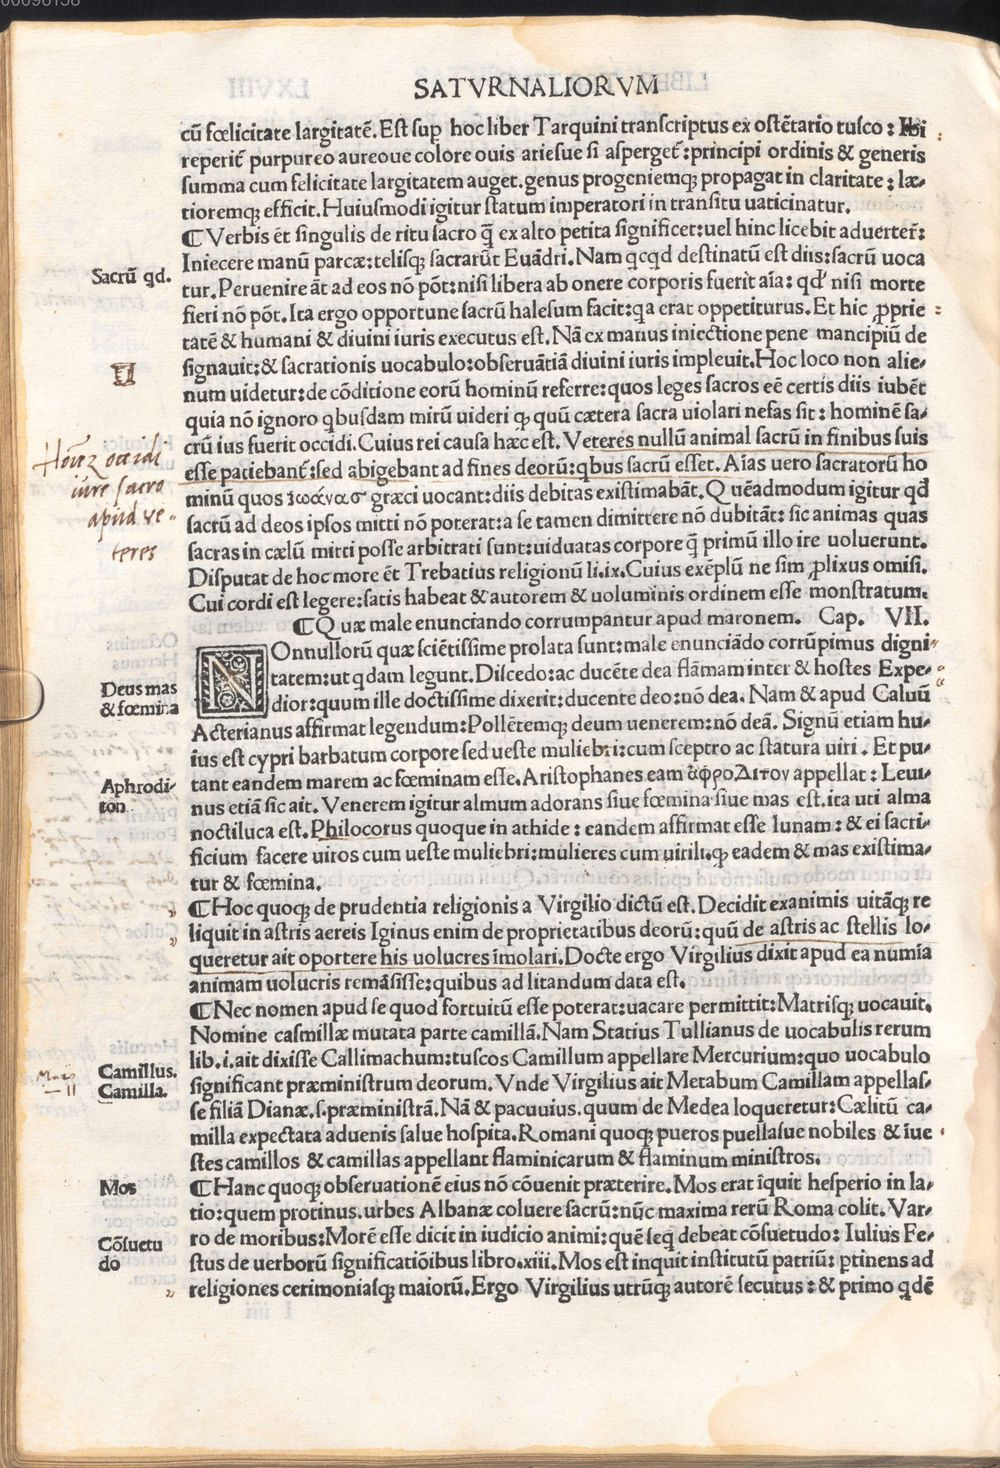 00096158
SATVRNALIORVM
cū fœlicitate largitatē. Est sup hoc liber Tarquini transcriptus ex ostētario tusco: Ibi
reperit̄ purpureo aureoue colore ouis ariesue si asperget̄: principi ordinis & generis
summa cum felicitate largitatem auget. genus progeniemqꝫ propagat in claritate: læ-
tioremqꝫ efficit. Huiusmodi igitur statum imperatori in transitu uaticinatur.
¶ Verbis ēt singulis de ritu sacro q̄ ex alto petita significet: uel hinc licebit aduerter̄:
Sacrū qd.
Iniecere manū parcæ: telisqꝫ sacrarūt Euādri. Nam qcqd destinatū est diis: sacrū uoca
tur. Peruenire āt ad eos nō pōt: nisi libera ab onere corporis fuerit aīa: qd' nisi morte
fieri nō pōt. Ita ergo opportune sacrū halesum facit: qa erat oppetiturus. Et hic ꝓprie
tatē & humani & diuini iuris executus est. Nā ex manus iniectione pene mancipiū de
signauit: & sacrationis uocabulo: obseruātiā diuini iuris impleuit. Hoc loco non alie-
num uidetur: de cōditione eorū hominū referre: quos leges sacros eē certis diis iubēt
quia nō ignoro qbusdam mirū uideri qꝫ quū cætera sacra uiolari nefas sit: hominē sa-
crū ius fuerit occidi. Cuius rei causa hæc est. Veteres nullū animal sacrū in finibus suis
Hōiez occidi
iure sacro
apud ve-
teres
esse patiebant̄: sed abigebant ad fines deorū: qbus sacrū esset. Aīas uero sacratorū ho
minū quos ζωάνασ græci uocant: diis debitas existimabāt. Quēadmodum igitur qd
sacrū ad deos ipsos mitti nō poterat: a se tamen dimittere nō dubitāt: sic animas quas
sacras in cælū mitti posse arbitrati sunt: uiduatas corpore q̄ primū illo ire uoluerunt.
Disputat de hoc more ēt Trebatius religionū li. ix. Cuius exēplū ne sim ꝓlixus omisi.
Cui cordi est legere: satis habeat & autorem & uoluminis ordinem esse monstratum.
¶ Quæ male enunciando corrumpantur apud maronem. Cap. VII.
NOnnullorū quæ sciētissime prolata sunt: male enunciādo corrūpimus digni-
tatem: ut qdam legunt. Discedo: ac ducēte dea flāmam inter & hostes Expe-
Deus mas
& fœmina
dior: quum ille doctissime dixerit: ducente deo: nō dea. Nam & apud Caluū
Acterianus affirmat legendum: Pollētemqꝫ deum uenerem: nō deā. Signū etiam hu-
ius est cypri barbatum corpore sed ueste muliebri: cum sceptro ac statura uiri. Et pu-
Aphrodi-
ton
tant eandem marem ac fœminam esse. Aristophanes eam ἀφροΔιτον appellat: Leui-
nus etiā sic ait. Venerem igitur almum adorans siue fœmina siue mas est. ita uti alma
noctiluca est. Philocorus quoque in athide: eandem affirmat esse lunam: & ei sacri-
ficium facere uiros cum ueste muliebri: mulieres cum uirili. qꝫ eadem & mas existima-
tur & fœmina.
¶ Hoc quoqꝫ de prudentia religionis a Virgilio dictū est. Decidit exanimis uitāqꝫ re
liquit in astris aereis Iginus enim de proprietatibus deorū: quū de astris ac stellis lo-
queretur ait oportere his uolucres īmolari. Docte ergo Virgilius dixit apud ea numia
animam uolucris remāsisse: quibus ad litandum data est.
¶ Nec nomen apud se quod fortuitū esse poterat: uacare permittit: Matrisqꝫ uocauit.
Nomine casmillæ mutata parte camillā. Nam Statius Tullianus de uocabulis rerum
Camillus.
Camilla.
lib. i. ait dixisse Callimachum: tuscos Camillum appellare Mercurium: quo uocabulo
significant præministrum deorum. Vnde Virgilius ait Metabum Camillam appellas-
se filiā Dianæ. s. præministrā. Nā & pacuuius. quum de Medea loqueretur: Cælitū ca-
milla expectata aduenis salue hospita. Romani quoqꝫ pueros puellasue nobiles & īue
stes camillos & camillas appellant flaminicarum & flaminum ministros.
Mos
¶ Hanc quoqꝫ obseruationē eius nō cōuenit præterire. Mos erat īquit hesperio in la-
tio: quem protinus. urbes Albanæ coluere sacrū: nūc maxima rerū Roma colit. Var-
Cōsuetu
do
ro de moribus: Morē esse dicit in iudicio animi: quē seq debeat cōsuetudo: Iulius Fe-
stus de uerborū significatiōibus libro. xiii. Mos est inquit institutū patriū: ptinens ad
religiones cerimoniasqꝫ maiorū. Ergo Virgilius utrūqꝫ autorē secutus: & primo qdē